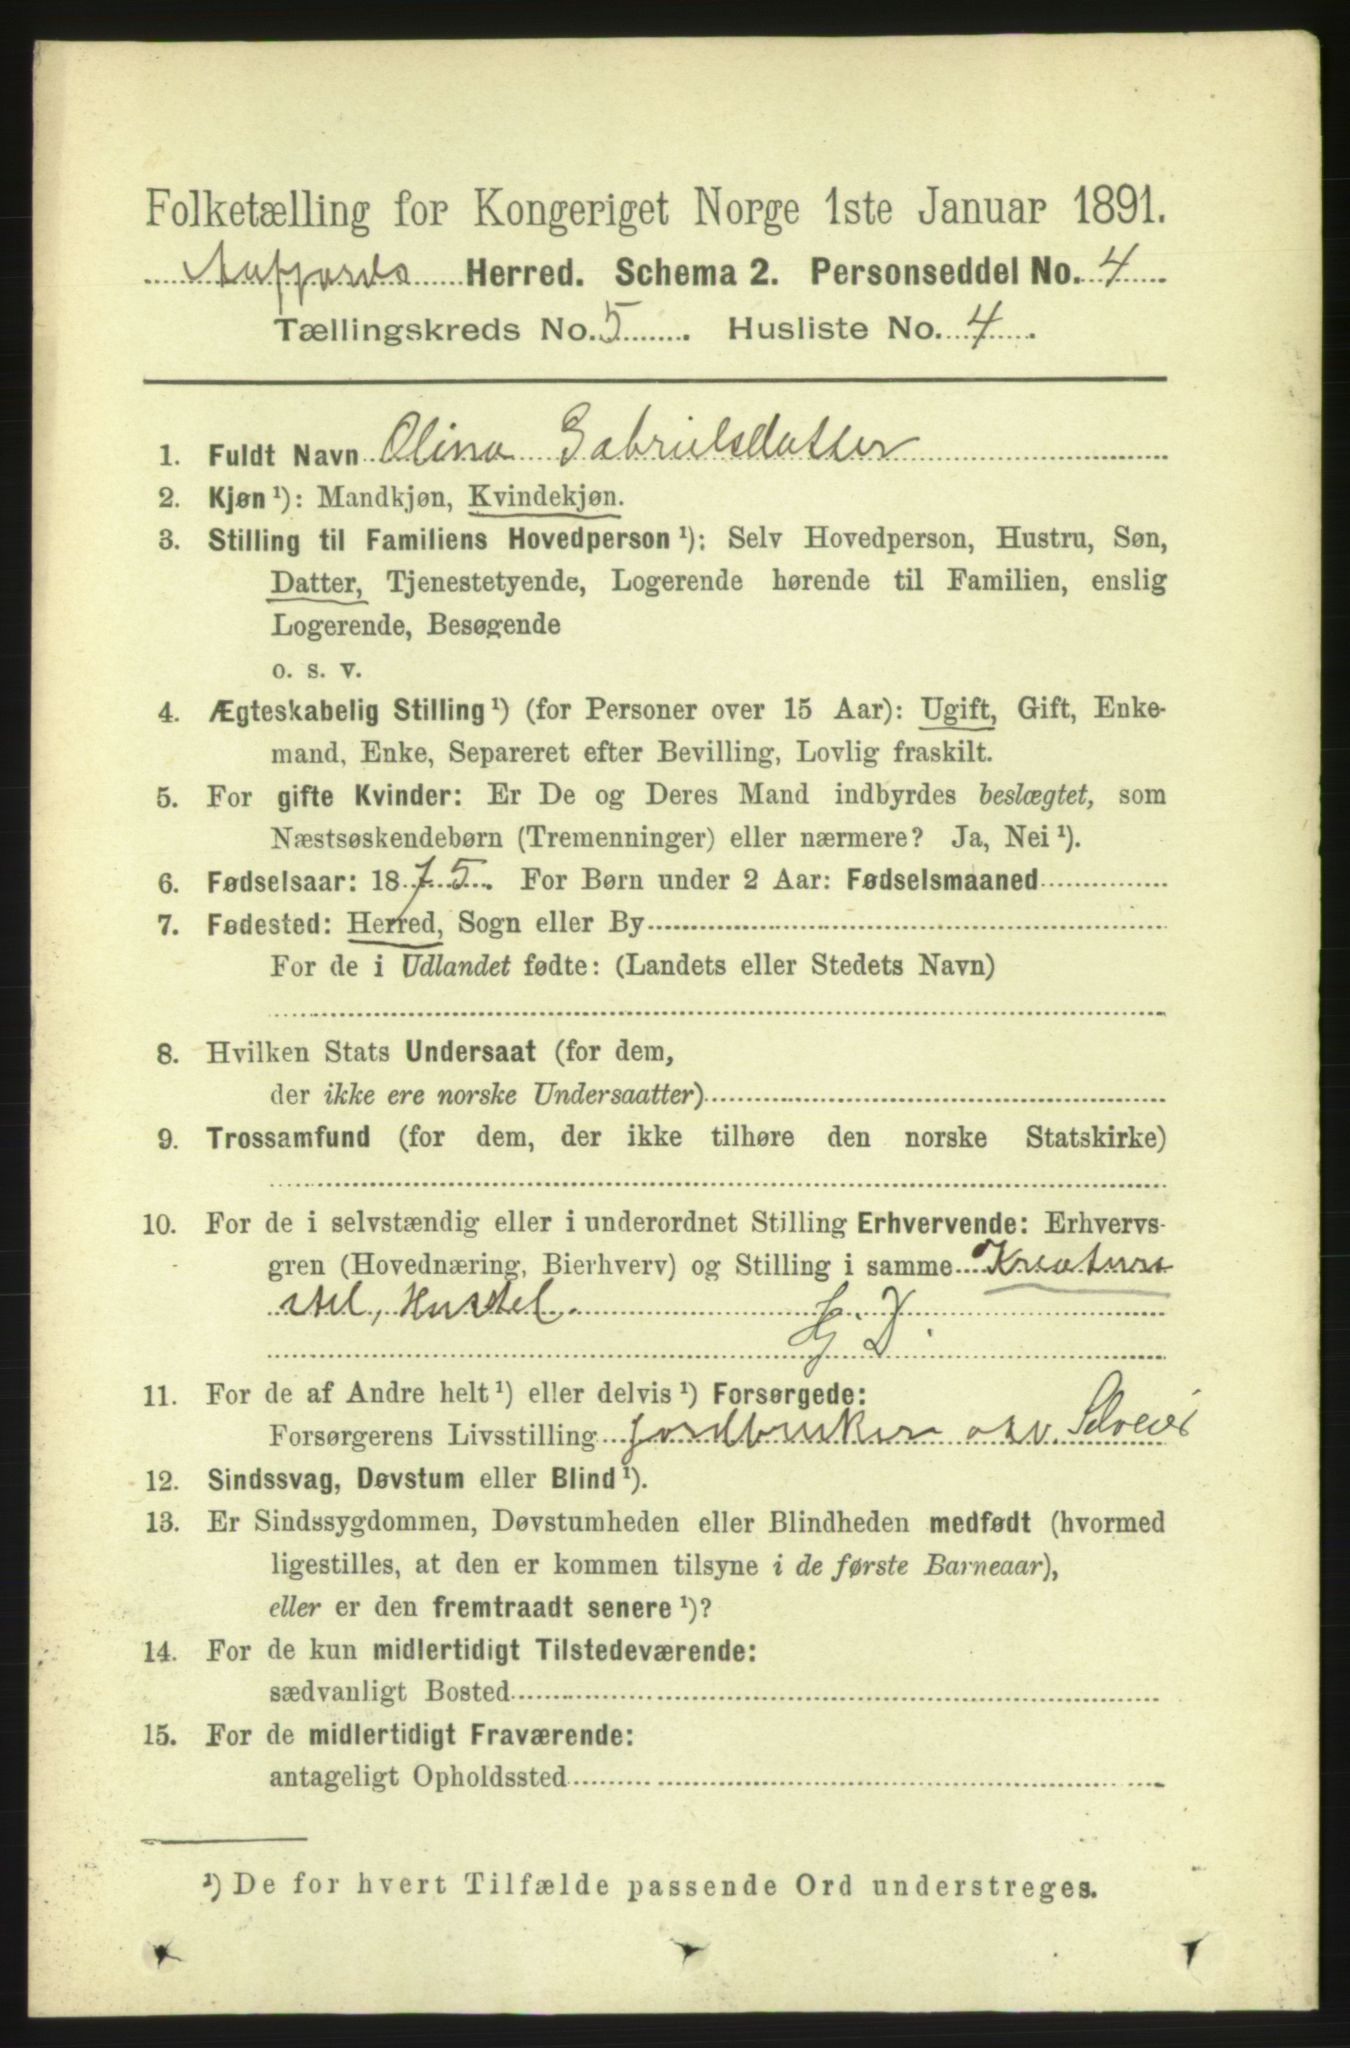 Folketælling for Kongeriget Norge 1ste Januar 1891.
Aafjords Herred. Schema 2. Personseddel No. 4
Tællingskreds No. 5 Husliste No. 4
1. Fuldt Navn Olina Gabrielsdatter
2. Kjøn ¹): Mandkjøn, Kvindekjøn.
3. Stilling til Familiens Hovedperson ¹): Selv Hovedperson, Hustru, Søn,
Datter, Tjenestetyende, Logerende hørende til Familien, enslig
Logerende, Besøgende
o. s. v.
4. Ægteskabelig Stilling ¹) (for Personer over 15 Aar): Ugift, Gift, Enke-
mand, Enke, Separeret efter Bevilling, Lovlig fraskilt.
5. For gifte Kvinder: Er De og Deres Mand indbyrdes beslægtet, som
Næstsøskendebørn (Tremenninger) eller nærmere? Ja, Nei ¹).
6. Fødselsaar: 1875. For Børn under 2 Aar: Fødselsmaaned
7. Fødested: Herred, Sogn eller By
For de i Udlandet fødte: (Landets eller Stedets Navn)
8. Hvilken Stats Undersaat (for dem,
der ikke ere norske Undersaatter)
9. Trossamfund (for dem, der ikke tilhøre den norske Statskirke)
10. For de i selvstændig eller i underordnet Stilling Erhvervende: Erhvervs-
gren (Hovednæring, Bierhverv) og Stilling i samme Kreature
stel, Husstel.
G. D.
11. For de af Andre helt ¹) eller delvis ¹) Forsørgede:
Forsørgerens Livsstilling Jordbruker osv. Selveier
12. Sindssvag, Døvstum eller Blind ¹).
13. Er Sindssygdommen, Døvstumheden eller Blindheden medfødt (hvormed
ligestilles, at den er kommen tilsyne i de første Barneaar),
eller er den fremtraadt senere ¹)?
14. For de kun midlertidigt Tilstedeværende:
sædvanligt Bosted
15. For de midlertidigt Fraværende:
antageligt Opholdssted
¹) De for hvert Tilfælde passende Ord understreges.